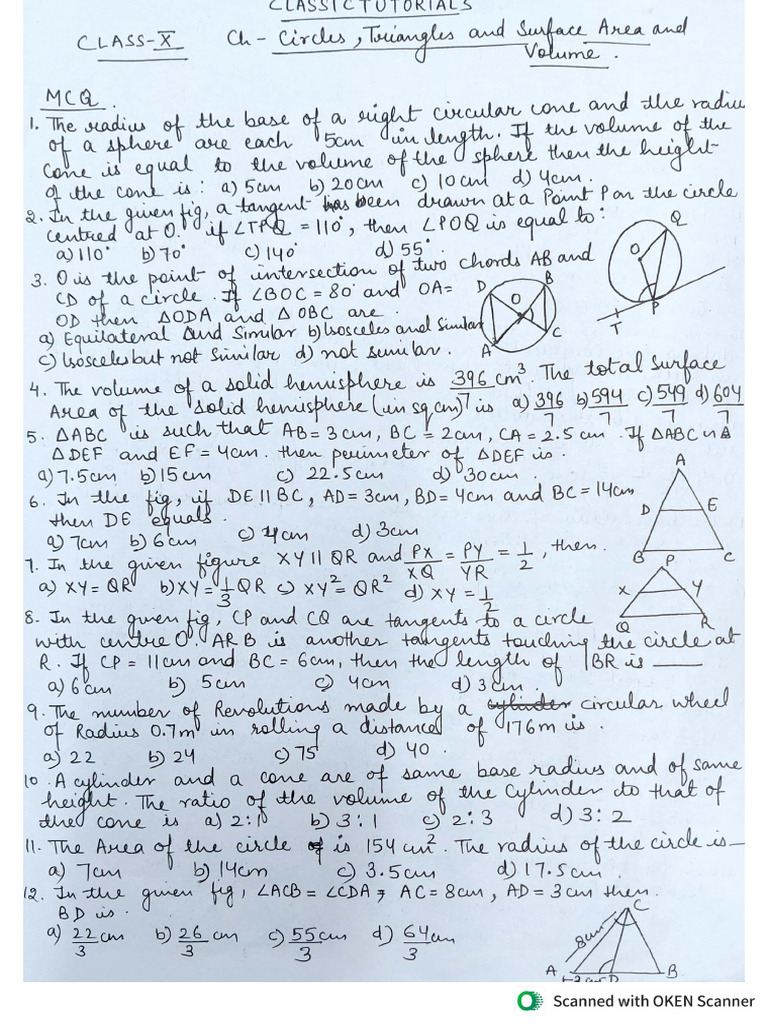 CLASSIC TUTORIALS
CLASS-X Ch - Circles, Triangles and Surface Area and
Volume.
MCQ.
1. The radius of the base of a right circular cone and the radius
of a sphere are each 5cm in length. If the volume of the
cone is equal to the volume of the sphere then the height
of the cone is: a) 5cm b) 20cm c) 10cm d) 4cm.
2. In the given fig, a tangent has been drawn at a Point P on the circle
centred at O. if ∠TPQ = 110°, then ∠POQ is equal to:
a) 110° b) 70° c) 140° d) 55°
3. O is the point of intersection of two chords AB and
CD of a circle. If ∠BOC = 80° and OA =
OD then △ODA and △OBC are.
a) Equilateral and Similar b) Isosceles and Similar
c) Isosceles but not Similar d) not similar.
Q
O
P
T
D
B
O
C
A
4. The volume of a solid hemisphere is 396/7 cm³. The total surface
Area of the solid hemisphere (in sq.cm) is a) 396/7 b) 594/7 c) 549/7 d) 604/7
5. △ABC is such that AB = 3cm, BC = 2cm, CA = 2.5cm. If △ABC ~ △
△DEF and EF = 4cm. then perimeter of △DEF is.
a) 7.5cm b) 15cm c) 22.5cm d) 30cm.
6. In the fig, if DE || BC, AD = 3cm, BD = 4cm and BC = 14cm
then DE equals.
a) 7cm b) 6cm c) 4cm d) 3cm
A
D E
B C
7. In the given figure XY || QR and PX/XQ = PY/YR = 1/2, then.
a) XY = QR b) XY = 1/3 QR c) XY² = QR² d) XY = 1/2
P
X Y
Q R
8. In the given fig, CP and CQ are tangents to a circle
with centre O. ARB is another tangents touching the circle at
R. If CP = 11cm and BC = 6cm, then the length of BR is ____
a) 6cm b) 5cm c) 4cm d) 3cm.
9. The number of Revolutions made by a cylinder circular wheel
of Radius 0.7m in rolling a distance of 176m is.
a) 22 b) 24 c) 75 d) 40.
10. A cylinder and a cone are of same base radius and of same
height. The ratio of the volume of the cylinder to that of
the cone is a) 2:1 b) 3:1 c) 2:3 d) 3:2
11. The Area of the circle is 154 cm². The radius of the circle is __
a) 7cm b) 14cm c) 3.5cm d) 17.5cm.
12. In the given fig, ∠ACB = ∠CDA, AC = 8cm, AD = 3cm then.
BD is.
a) 22/3 cm b) 26/3 cm c) 55/3 cm d) 64/3 cm
C
8cm
A 3cm D B
Scanned with OKEN Scanner